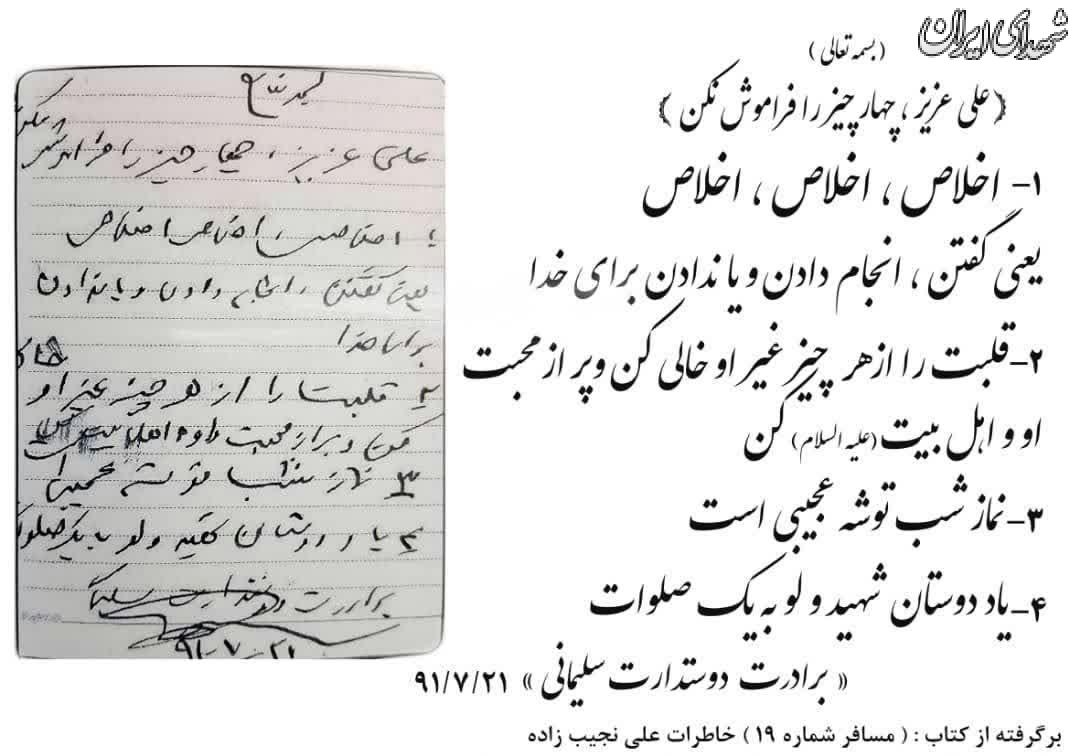 شهدای ایران
(بسمه تعالی)
(علی عزیز، چهار چیز را فراموش نکن)
۱- اخلاص، اخلاص، اخلاص
یعنی گفتن، انجام دادن و یا ندادن برای خدا
۲-قلبت را از هر چیز غیر او خالی کن و پر از محبت
او و اهل بیت (علیه السلام) کن
۳-نماز شب توشه عجیبی است
۴-یاد دوستان شهید و لو به یک صلوات
« برادرت دوستدارت سلیمانی » ۹۱/۷/۲۱
برگرفته از کتاب : ( مسافر شماره ۱۹ ) خاطرات علی نجیب زاده
علی عزیز، چهار چیز را فراموش نکن
۱ـ اخلاص، اخلاص اخلاص
یعنی گفتن، انجام دادن و یا ندادن
برای خدا
۲ـ قلبت را از هر چیز غیر او خالی
کن و پر از محبت او و اهل بیت کن
۳ـ نماز شب توشه عجیبی
۴ـ یاد دوستان و لو با یک صلوات
برادرت دوستدارت سلیمانی
۹۱/۷/۲۱